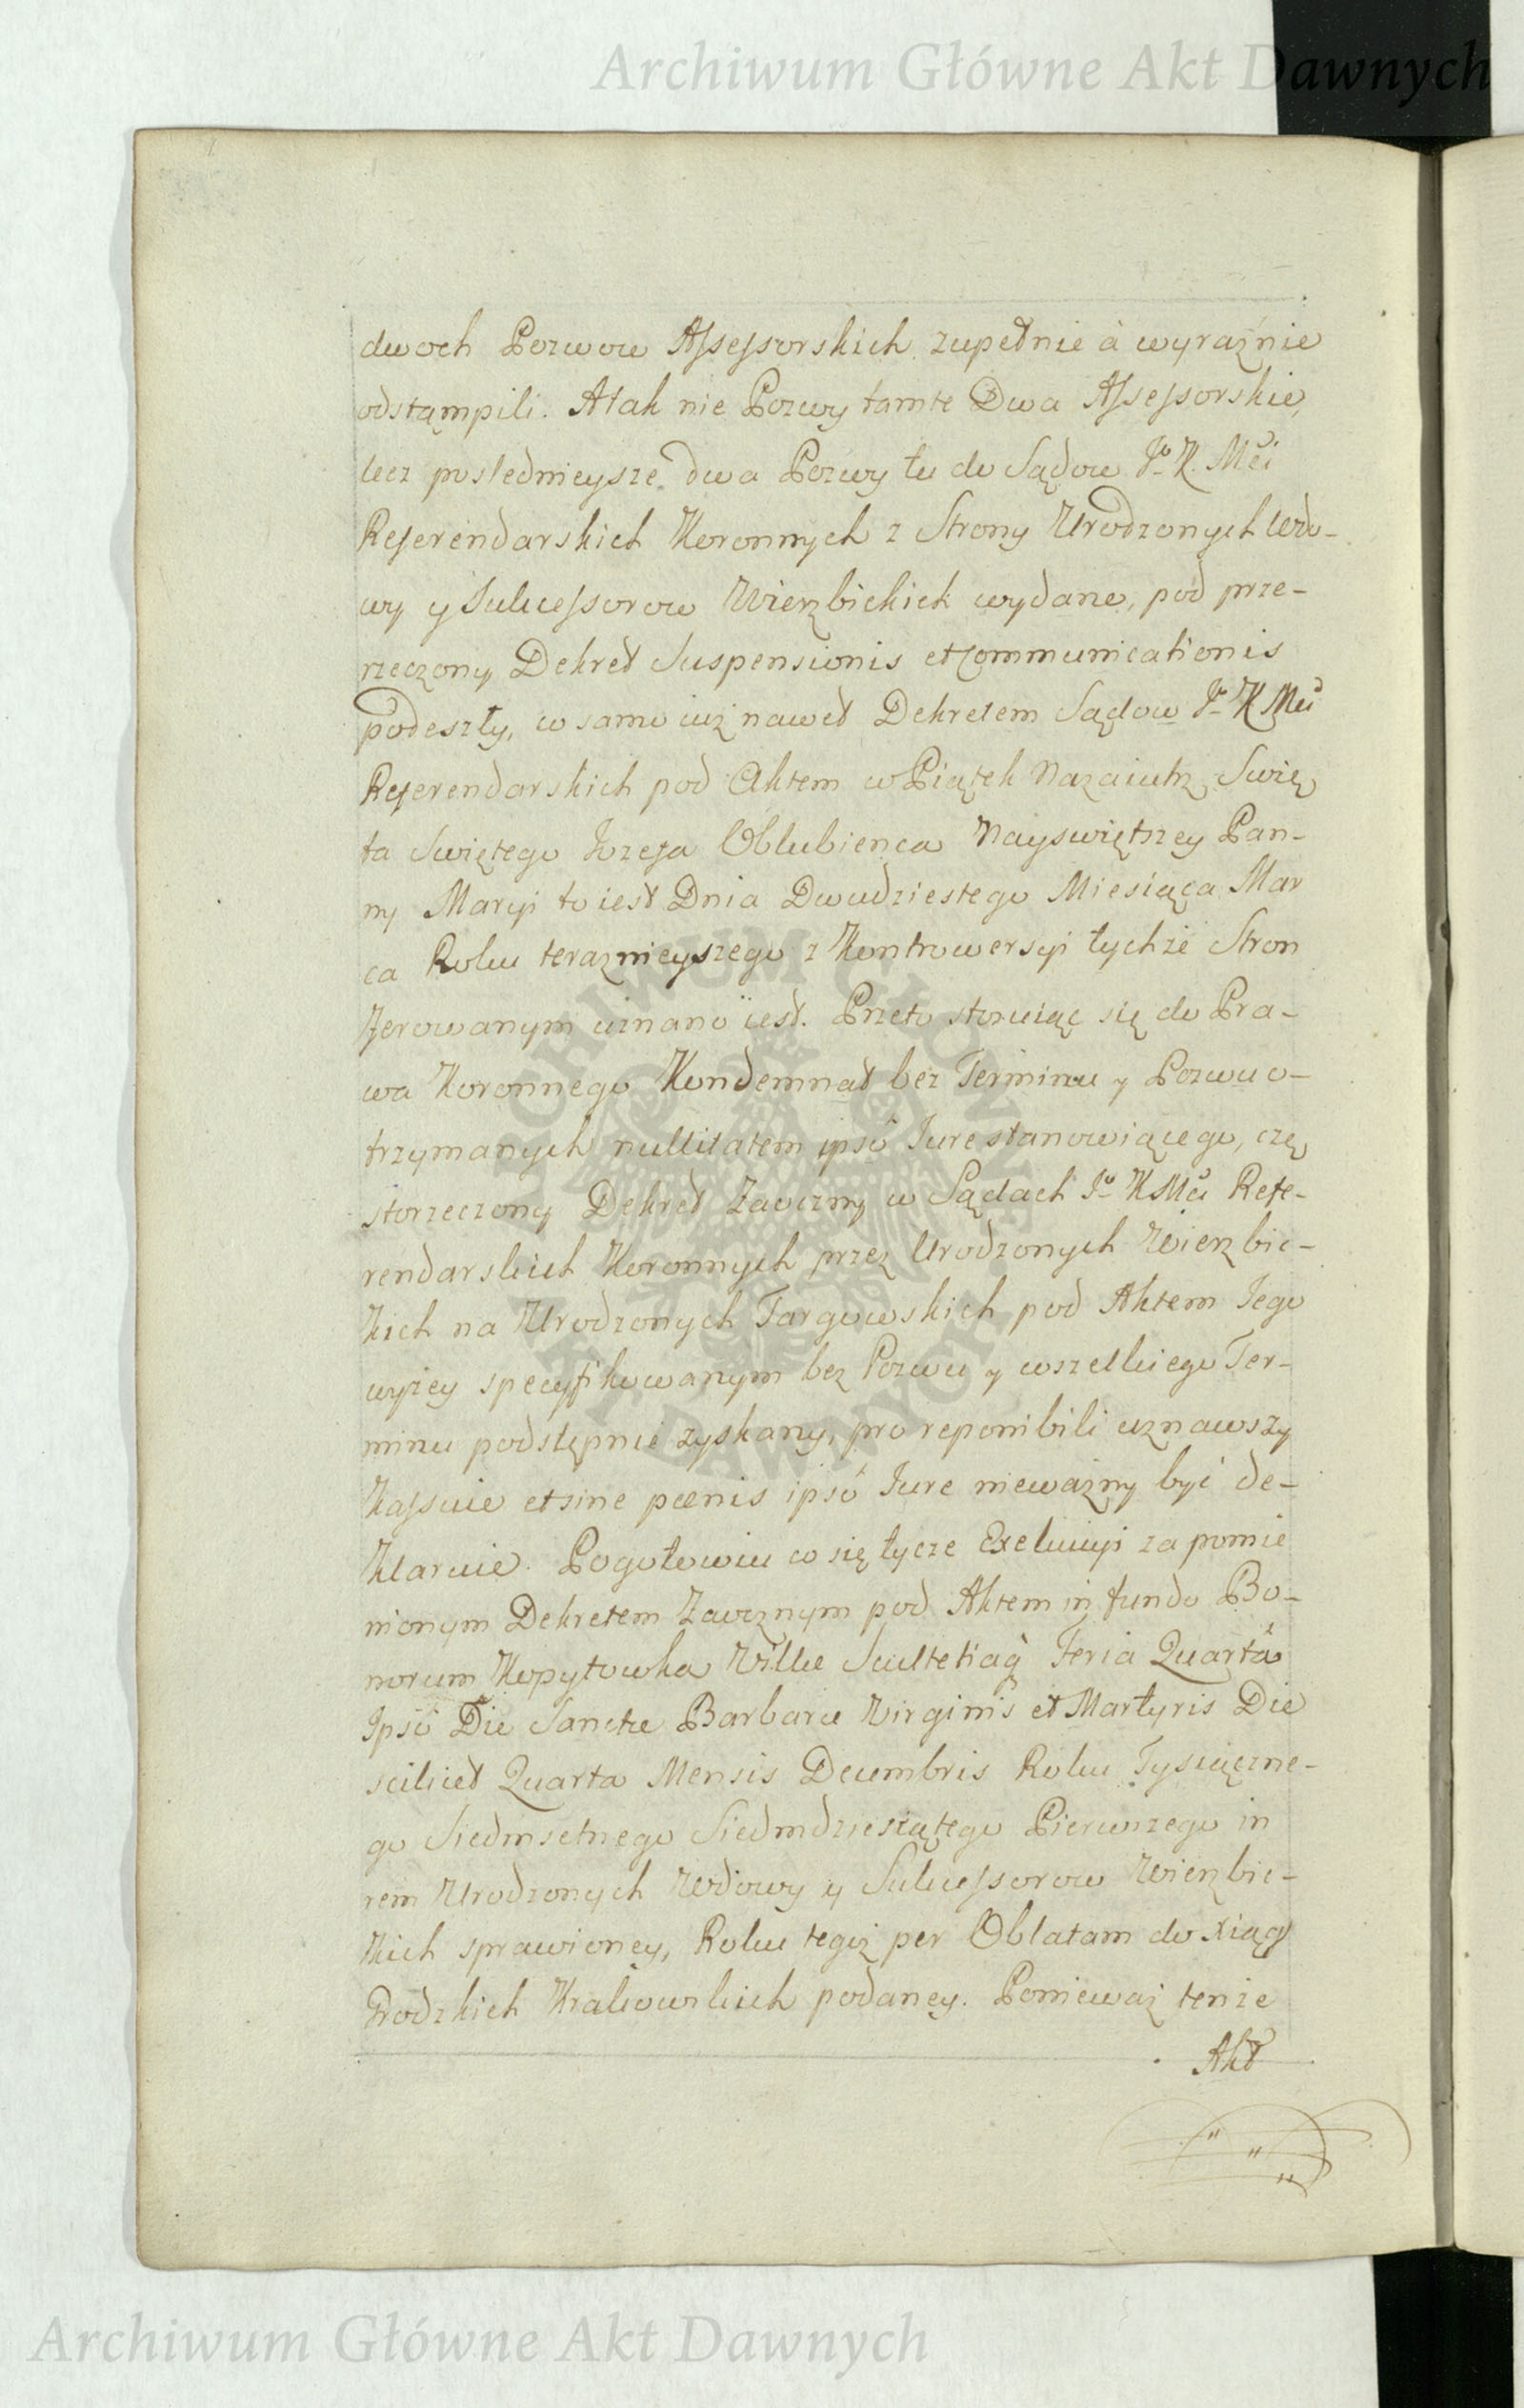 Archiwum Główne Akt Dawnych
dwoch Pozwow Assessorskich zupełnie à wyraźnie
odstąmpili. A tak nie Pozwy tamte Dwa Assessorskie,
lecz poslednieysze dwa Pozwy tu do Sądow Jo K. Mci
Referendarskich Koronnych z Strony Urodzonych Wdo-
wy y Sukcessorow Wierzbickich wydane, pod prze-
rzeczony Dekret Suspensionis et Communicationis
podeszły, co samo iuż nawet Dekretem Sądow Jo K Mci
Referendarskich pod Aktem w Piątek Nazaiutrz Swię
ta Swiętego Jozefa Oblubieńca Nayswiętszey Pan-
ny Maryi to iest Dnia Dwudziestego Miesiąca Mar
ca Roku teraznieyszego z Kontrowersyi tychże Stron
Ferowanym uznano iest. Przeto stosuiąc się do Pra-
wa Koronnego Kondemnat bez Terminu y Pozwu o-
trzymanych nullitatem ipsô Jure stanowiącego, czę
storzeczony Dekret Zaoczny w Sądach Jo K Mci Refe-
rendarskich Koronnych przez Urodzonych Wierzbic-
kich na Urodzonych Targowskich pod Aktem Jego
wyżey specyfikowanym bez Pozwu y wszelkiego Ter-
minu podstępnie zyskany, pro reponibili uznawszy
Kassuie et sine pœnis ipsô Jure nieważny być de-
klaruie. Pogotowiu co się tycze Exekucyi za pomie
nionym Dekretem Zaocznym pod Aktem in fundo Bo-
norum Kopytowka Villæ Scultetiaq Feria Quartâ
Ipsô Die Sanctæ Barbaræ Virginis et Martyris Die
scilicet Quarta Mensis Decembris Roku Tysiączne-
go Siedmsetnego Siedmdziesiątego Pierwszego in
rem Urodzonych Wdowy y Sukcessorow Wierzbic-
kich sprawioney, Roku tegoż per Oblatam do Xiąg
Grodzkich Krakowskich podaney. Ponieważ tenże
Akt
ARCHIWUM GŁÓWNE AKT DAWNYCH
Archiwum Główne Akt Dawnych